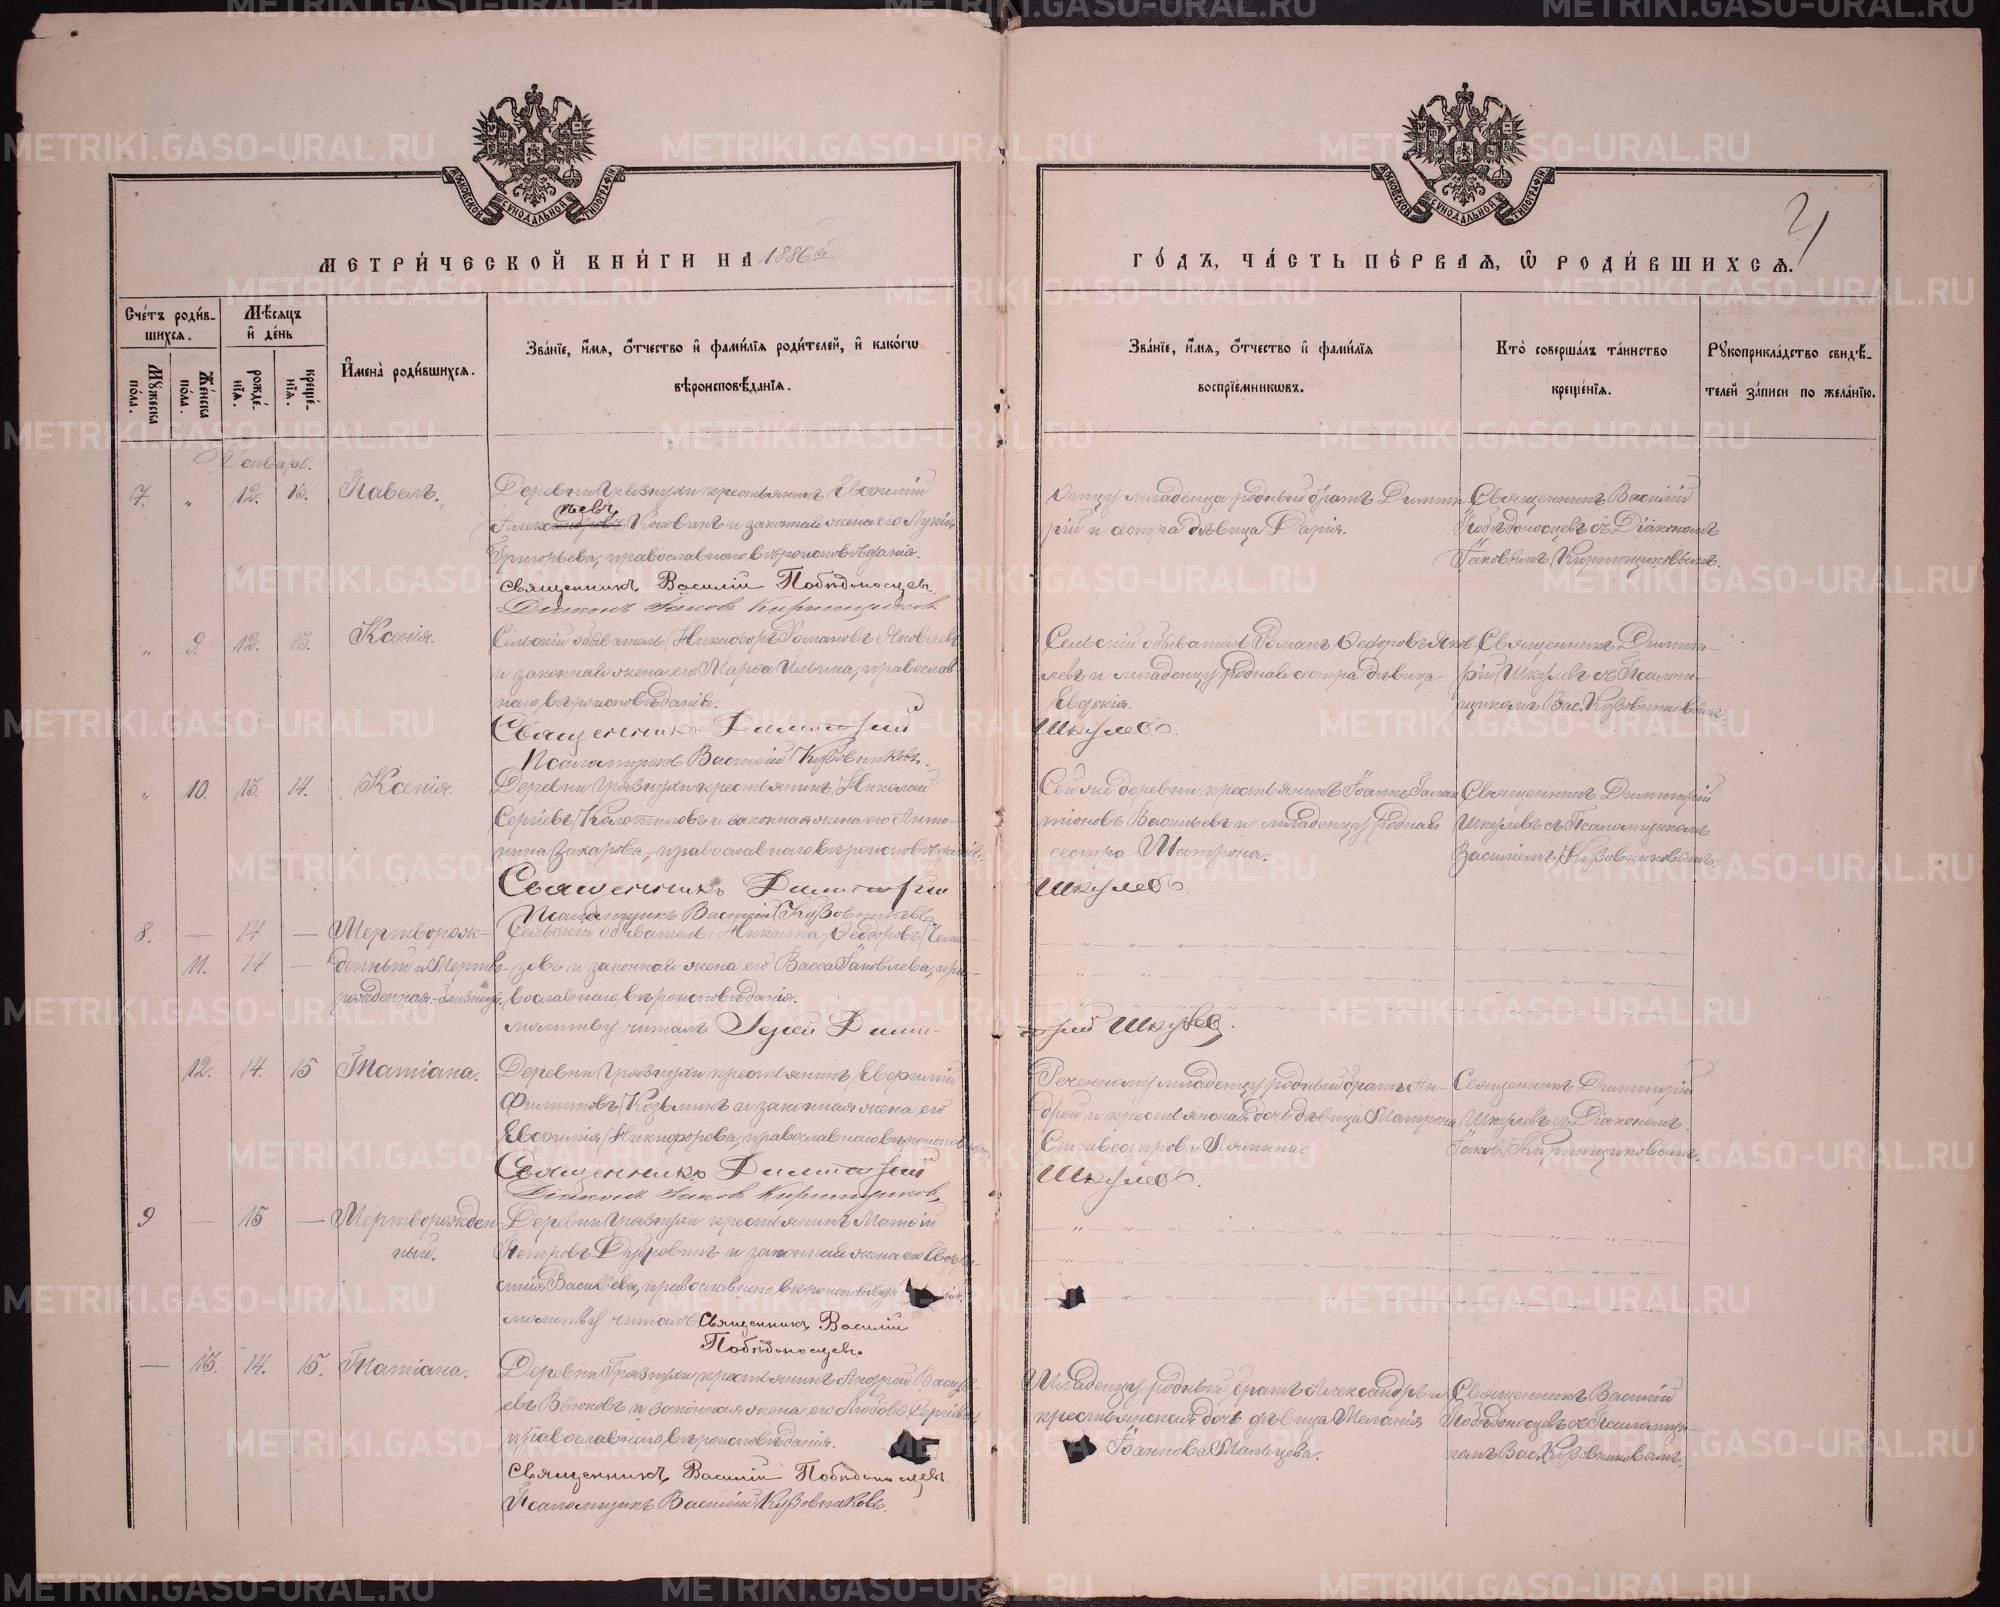 МЕТРИ́ЧЕСКОЙ КНИ́ГИ НА 1886й ГО́ДЪ, ЧА́СТЬ ПЕ́РВАЯ, Ѡ РОДИ́ВШИХСЯ.
МОСКОВСКОЙ СѴНОДАЛЬНОЙ ТИПОГРАФІИ
МОСКОВСКОЙ СѴНОДАЛЬНОЙ ТИПОГРАФІИ
Сче́тъ роди́в-
шихся.
Мѣ́сяцъ
и҆ де́нь
Му́жеска по́ла.
Же́нска по́ла.
рожде́нїя.
креще́нїя.
И҆мена̀ роди́вшихся.
Зва́нїе, и҆́мя, о҆́тчество и҆ фами́лїя роди́телей, и҆ како́гѡ
вѣроисповѣ́данїя.
Зва́нїе, и҆́мя, о҆́тчество и҆ фами́лїя
воспрїе́мникѡвъ.
Кто̀ соверша́лъ та́инство
креще́нїя.
Рꙋкоприкла́дство свидѣ́-
телей за́писи по жела́нїю.
Генварь.
7. " 12. 13. Павелъ.
Деревни Грязнухи крестьянинъ Евфимій
ѣевъ
Алек Коковинъ и законная жена его Лукія
Григорьева, православнаго вѣроисповѣданія.
Священникъ Василій Побѣдоносцевъ.
Діаконъ Іаковъ Кирпищиковъ
младенца родный братъ Димит
рій и сестра дѣвица Дарія.
Священникъ Василій
Побѣдоносцевъ съ Діакономъ
Іаковымъ Кирпищиковымъ.
" 9. 12. 13. Ксенія.
Сельскій обыватель Никифоръ Романовъ Яковлевъ
и законная жена его Марѳа Ильина, православ
наго вѣроисповѣданія.
Священникъ Димитрій
Псаломщикъ Василій Кузовниковъ.
Сельскій обыватель Романъ Ѳедоровъ Яков
левъ и младенцу родная сестра дѣвица
Евдокія.
Шкулевъ.
Священникъ Димит-
рій Шкулевъ съ Псалом-
щикомъ Вас. Кузовниковымъ.
" 10. 13. 14. Ксенія.
Деревни Грязнухи крестьянинъ Николай
Сергіевъ Колотиловъ и законная жена его Анто-
нина Захарова, православнаго вѣроисповѣданія.
Священникъ Димитрій
Псаломщикъ Василій Кузовниковъ
Сей же деревни крестьянинъ Іоаннъ
Васильевъ и младенцу родная
сестра Матрона.
Шкулевъ.
Священникъ Димитрій
Шкулевъ съ Псаломщикомъ
Василіемъ Кузовниковымъ.
8. — 14 — Мертворож-
11. 14 — денный и Мертво
рожденная - близнецы
Сельскій обыватель Никита Ѳеодоровъ
и законная жена его Васса Іаковлева, пра-
вославнаго вѣроисповѣданія.
молитву читалъ Іерей Дими-
трій Шкулевъ.
12. 14. 15 Татіана.
Деревни Грязнухи крестьянинъ Евфимій
Филиповъ Козьминъ и законная жена его
Евфимія Никифорова, православнаго вѣроисповѣданія.
Священникъ Димитрій
Діаконъ Іаковъ Кирпищиковъ,
Реченному младенцу родный братъ Ан-
дрей и крестьянская дочь дѣвица Матрона
Селивестрова Лямина.
Шкулевъ.
Священникъ Димитрій
Шкулевъ съ Діакономъ
Іаков. Кирпищиковымъ.
9 — 15 — Мертворожден-
ный.
Деревни Грязнухи крестьянинъ Матѳій
Петровъ и законная жена его Евдо-
Васильева, православнаго вѣроисповѣданія.
молитву читалъ Священникъ Василій
Побѣдоносцевъ.
— 13. 14. 15. Татіана.
Деревни Грязнухи крестьянинъ Андрей Василь
евъ Вьюковъ и законная жена его Любовь Сергіева
православнаго вѣроисповѣданія.
Священникъ Василій Побѣдоносцевъ
Псаломщикъ Василій Кузовниковъ.
Младенцу родный братъ Александръ и
крестьянская дочь дѣвица Меланія
Іоаннова Мальцева.
Священникъ Василій
Побѣдоносцевъ съ Псаломщи-
комъ Вас. Кузовниковымъ.
METRIKI.GASO-URAL.RU